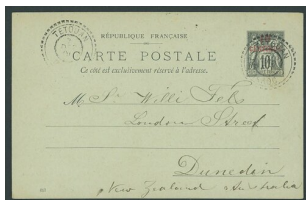 TETOUAN
RÉPUBLIQUE FRANÇAISE
CARTE POSTALE
Ce côté est exclusivement réservé à l'adresse.
10
Mr Willi Fels
London Street
Dunedin
New Zealand Australia